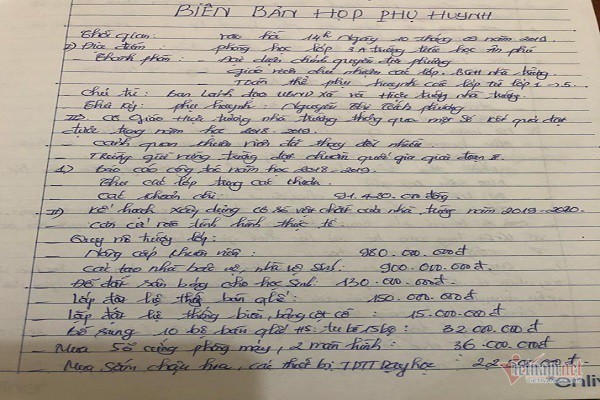 BIÊN BẢN HỌP PHỤ HUYNH
Thời gian: vào hồi 14h Ngày 10 tháng 09 năm 2019.
I) Địa điểm: phòng học lớp 3A trường tiểu học An phú
Thành phần: - Đại diện chính quyền địa phương
- Giáo viên chủ nhiệm các lớp. BGH nhà trường.
- Toàn thể phụ huynh các lớp từ lớp 1 -> 5.
Chủ trì: Ban Lãnh đạo UBND xã và Hiệu trưởng nhà trường.
Thư ký: phụ huynh: Nguyễn Thị Bích phương
II) Cô Giáo Hiệu trưởng nhà trường thông qua một số kết quả đạt
được trong năm học 2018-2019.
- Cảnh quan khuôn viên đã thay đổi nhiều.
- Trường giữ vững trường đạt chuẩn quốc gia giai đoạn II.
1) Báo cáo công tác năm học 2018-2019.
Thu các lớp từng các khoản.
Các khoản chi: 91.420.000đồng.
II) Kế hoạch xây dựng cơ sở vật chất của nhà trường năm 2019-2020.
- Căn cứ vào tình hình thực tế.
- Quy mô trường lớp:
- Nâng cấp khuôn viên: 980.000.000đ
- Cải tạo nhà bảo vệ, nhà vệ sinh: 900.000.000đ.
- Đổ đất sân bóng cho học sinh: 130.000.000đ.
- Lắp đặt hệ thống bàn ghế: 150.000.000đ
- Lắp đặt hệ thống biển, bảng cột cờ: 15.000.000đ
- Bổ sung 10 bộ bàn ghế HS: từ bộ 15bộ: 32.000.000đ
- Mua 5 cùng phòng máy, 2 màn hình: 36.000.000đ
- Mua sắm chậu hoa, các thiết bị TDTT Dạy học: 2.250.000đ.
vietnamnet
enliv